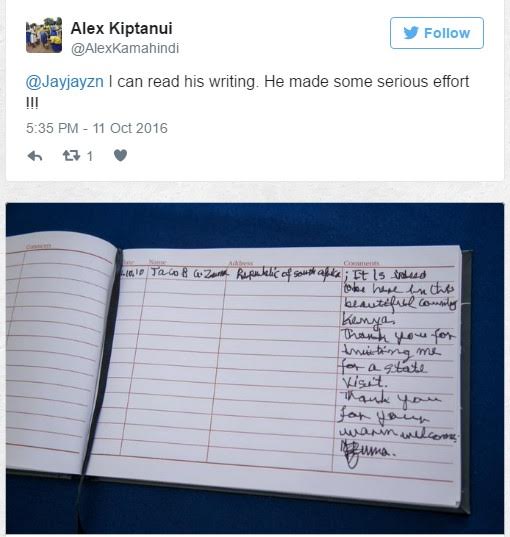 Alex Kiptanui
@AlexKamahindi
Follow
@Jayjayzn I can read his writing. He made some serious effort
!!!
5:35 PM - 11 Oct 2016
1
Comments
Name Address Comments
10.10 Jacob G. Zuma Republic of south africa ; It Is
here in this
beautiful country
Kenya.
Thank you for
inviting me
for a state
visit.
Thank you
for your
warm welcome.
Zuma.